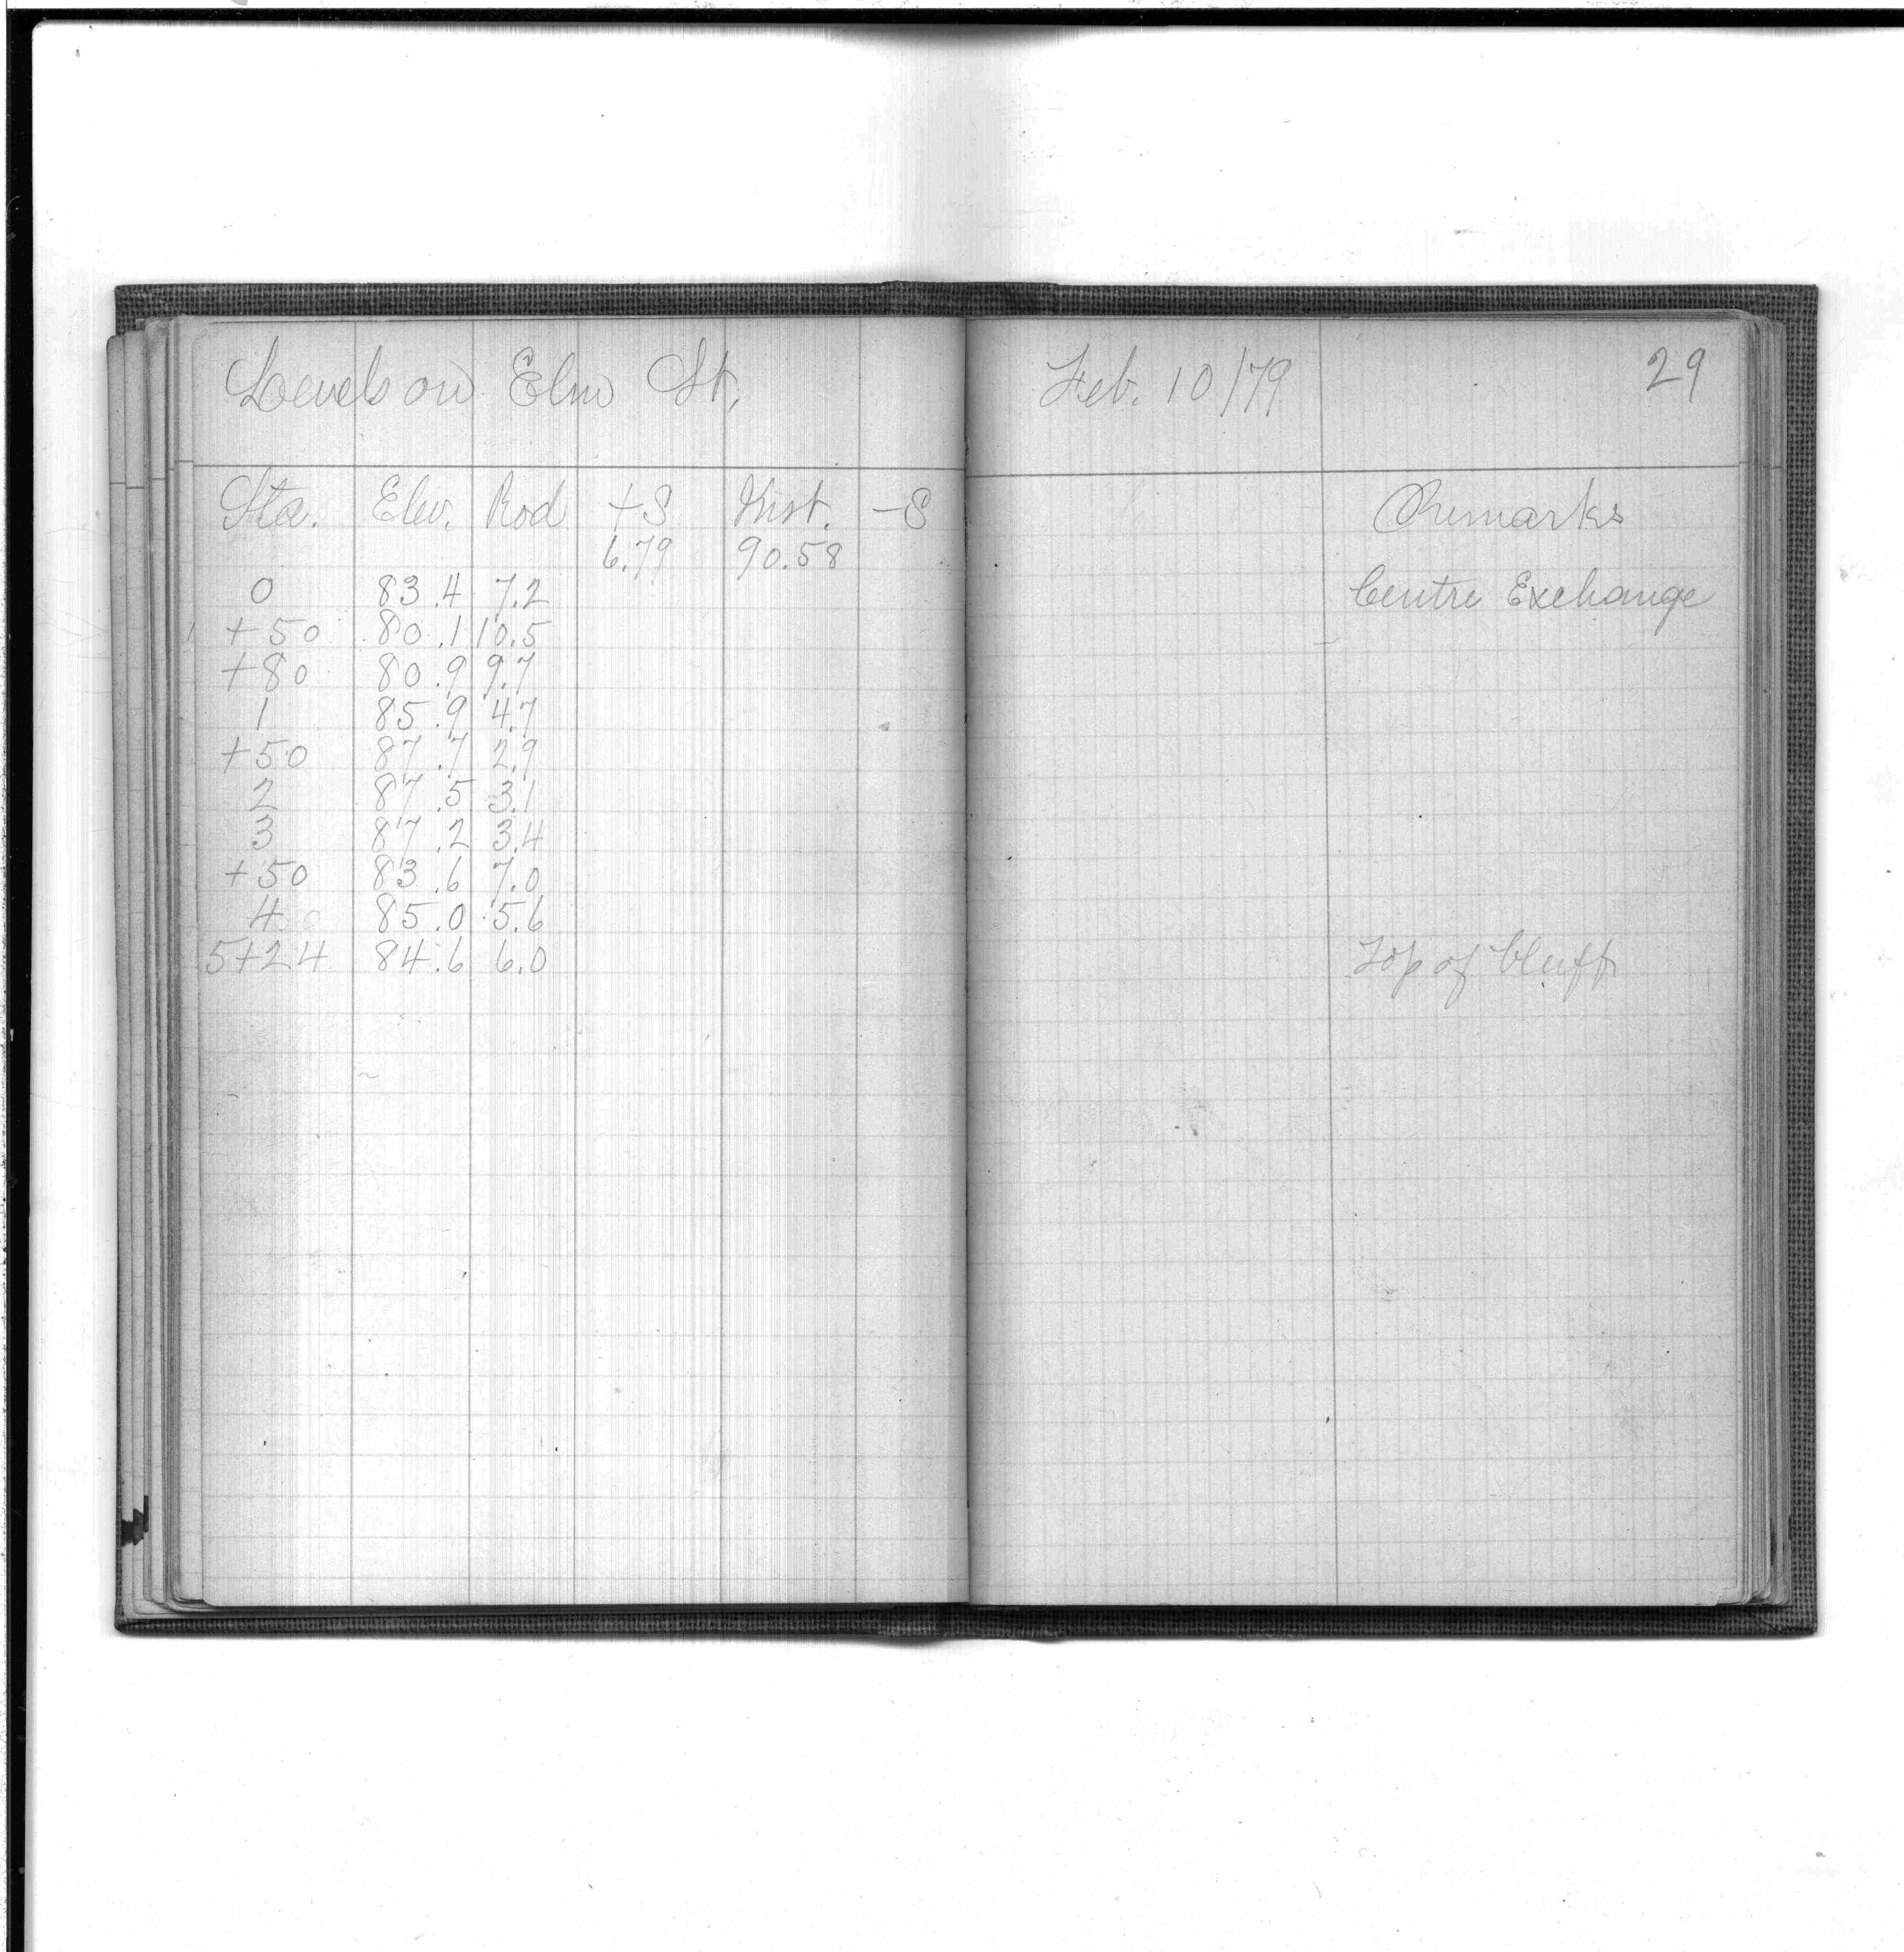 Levels on Elm St. Feb. 10/79 29
Sta. Elev. Rod +S Inst. -S Remarks
6.79 90.58
0 83.4 7.2 Centre Exchange
+50 80.1 10.5
+80 80.9 9.7
1 85.9 4.7
+50 87.7 2.9
2 87.5 3.1
3 87.2 3.4
+50 83.6 7.0
4 85.0 5.6
5+24 84.6 6.0 Top of bluff